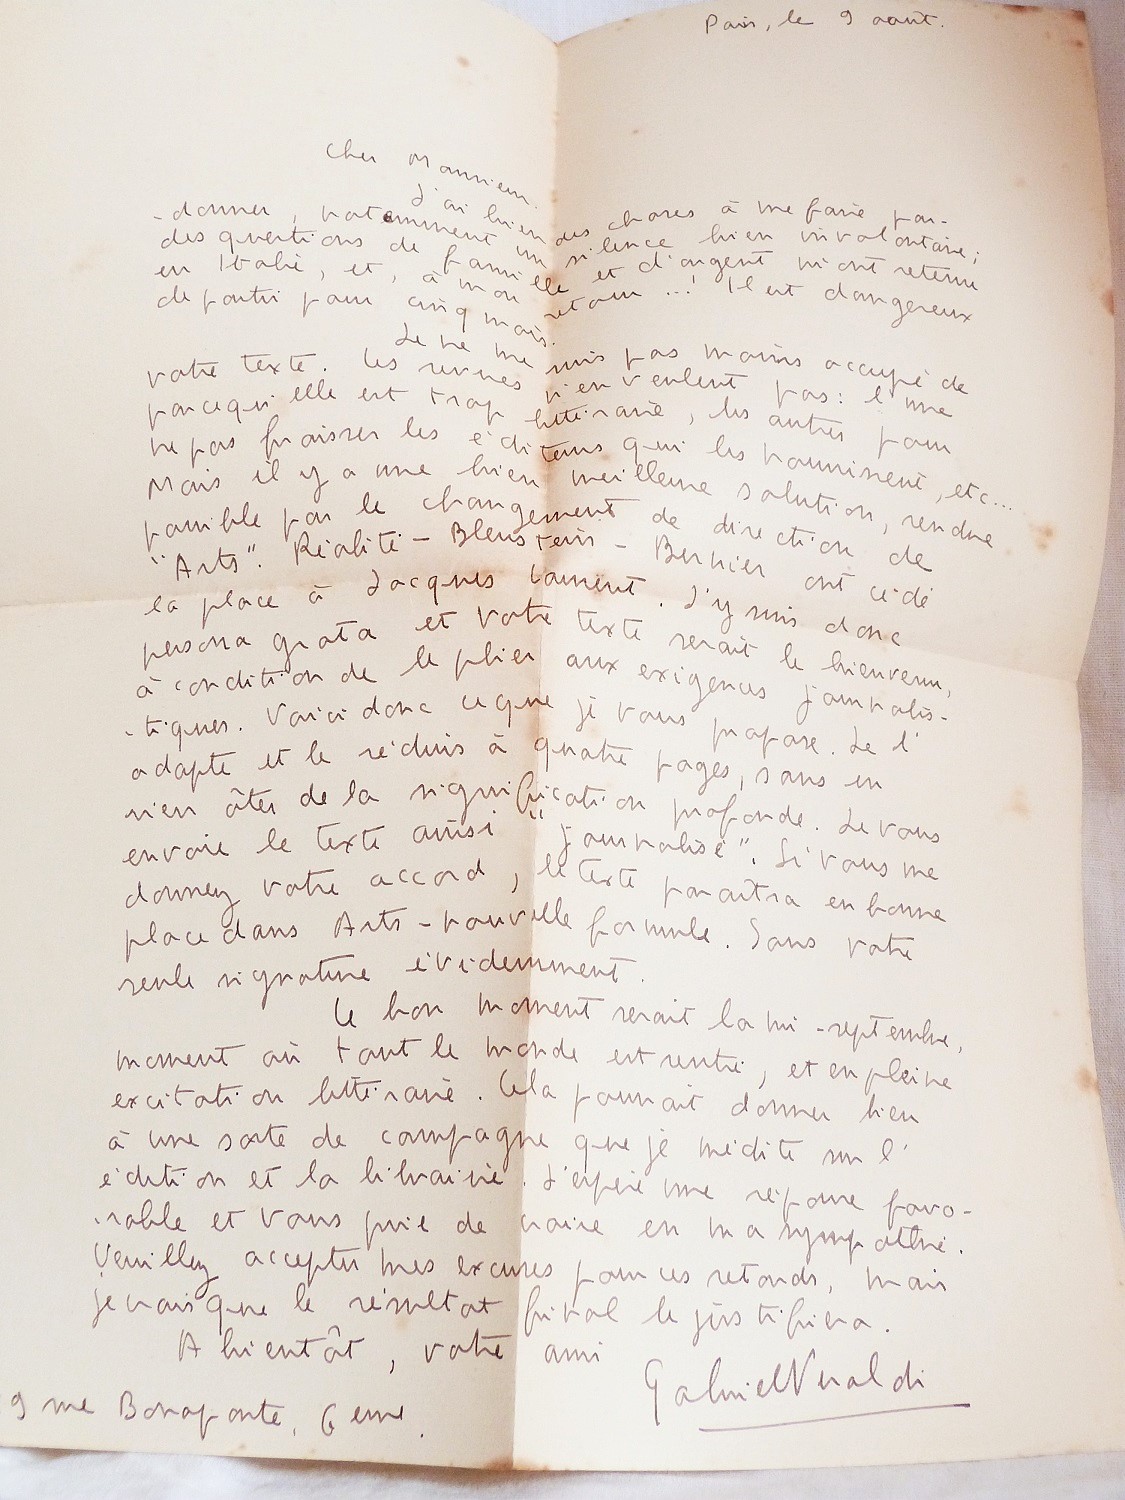 Paris, le 9 août.
Cher Monsieur.
J'ai bien des choses à me faire par-
-donner, notamment un silence bien involontaire;
des questions de famille et d'argent m'ont retenu
en Italie, et, à mon retour...! Il est dangereux
de partir pour cinq mois.
Je ne me suis pas moins occupé de
votre texte. Les revues n'en veulent pas: l'une
parcequ'elle est trop littéraire, les autres pour
ne pas froisser les éditeurs qui les nourrissent, etc...
Mais il y a une bien meilleure solution, rendue
possible par le changement de direction de
"Arts". Réalité - Bleustein - Bernier ont cédé
la place à Jacques Laurent. J'y suis donc
persona grata et votre texte serait le bienvenu,
à condition de le plier aux exigences journalis-
-tiques. Voici donc ce que je vous propose. Je l'
adapte et le réduis à quatre pages, sans en
rien ôter de la signification profonde. Je vous
envoie le texte ainsi "journalisé". Si vous me
donnez votre accord, le texte paraîtra en bonne
place dans Arts - nouvelle formule. Sous votre
seule signature évidemment.
Le bon moment serait la mi-septembre,
moment où tout le monde est rentré, et en pleine
excitation littéraire. Cela pourrait donner lieu
à une sorte de campagne que je médite sur l'
édition et la librairie. J'espère une réponse favo-
-rable et vous prie de croire en ma sympathie.
Veuillez accepter mes excuses pour ces retards, mais
je crois que le résultat final le justifiera.
A bientôt, votre ami
Gabriel Veraldi
9 rue Bonaparte, 6eme.